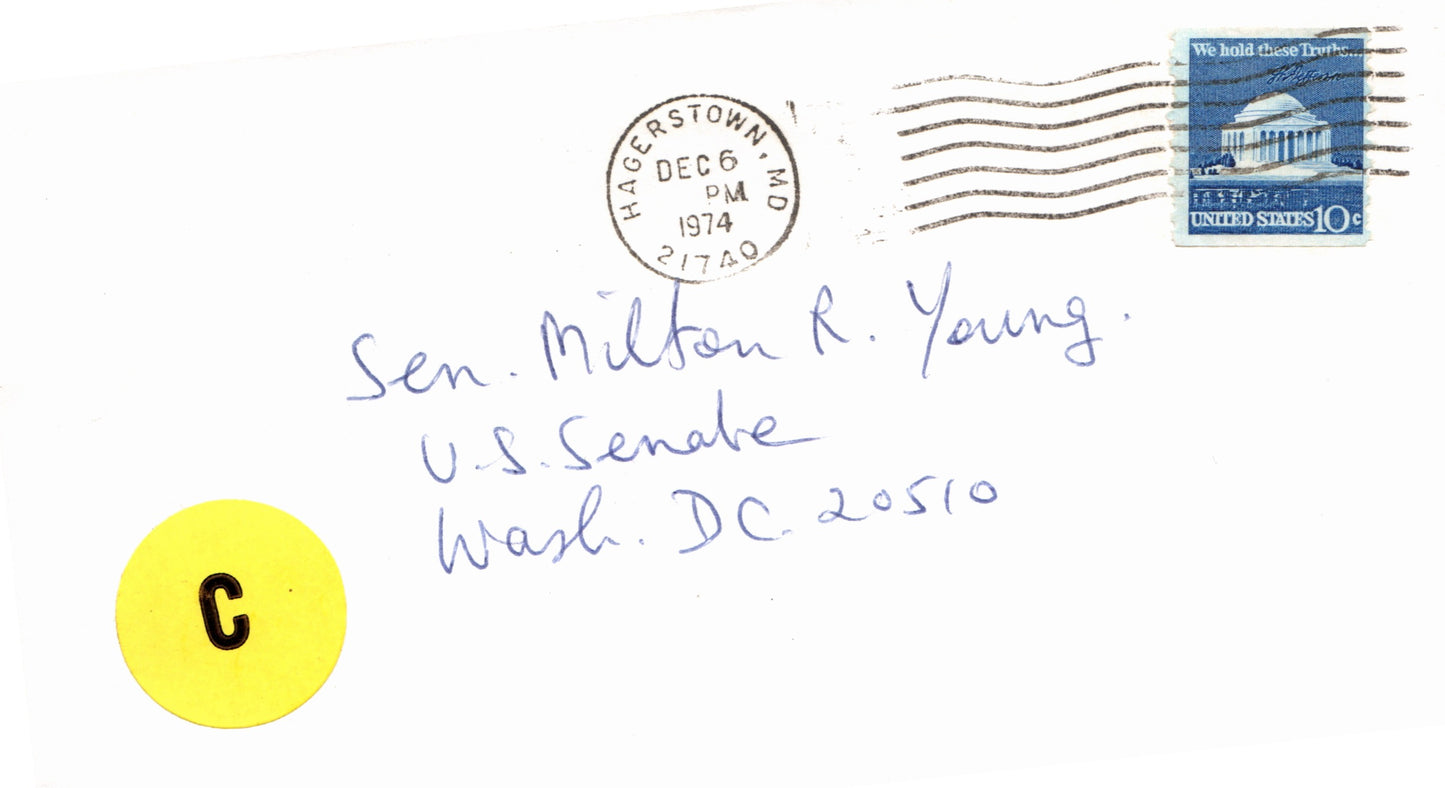 We hold these Truths...
Th Jefferson
UNITED STATES 10c
HAGERSTOWN, MD
DEC 6
PM
1974
21740
Sen. Milton R. Young.
U.S. Senate
Wash. DC. 20510
C